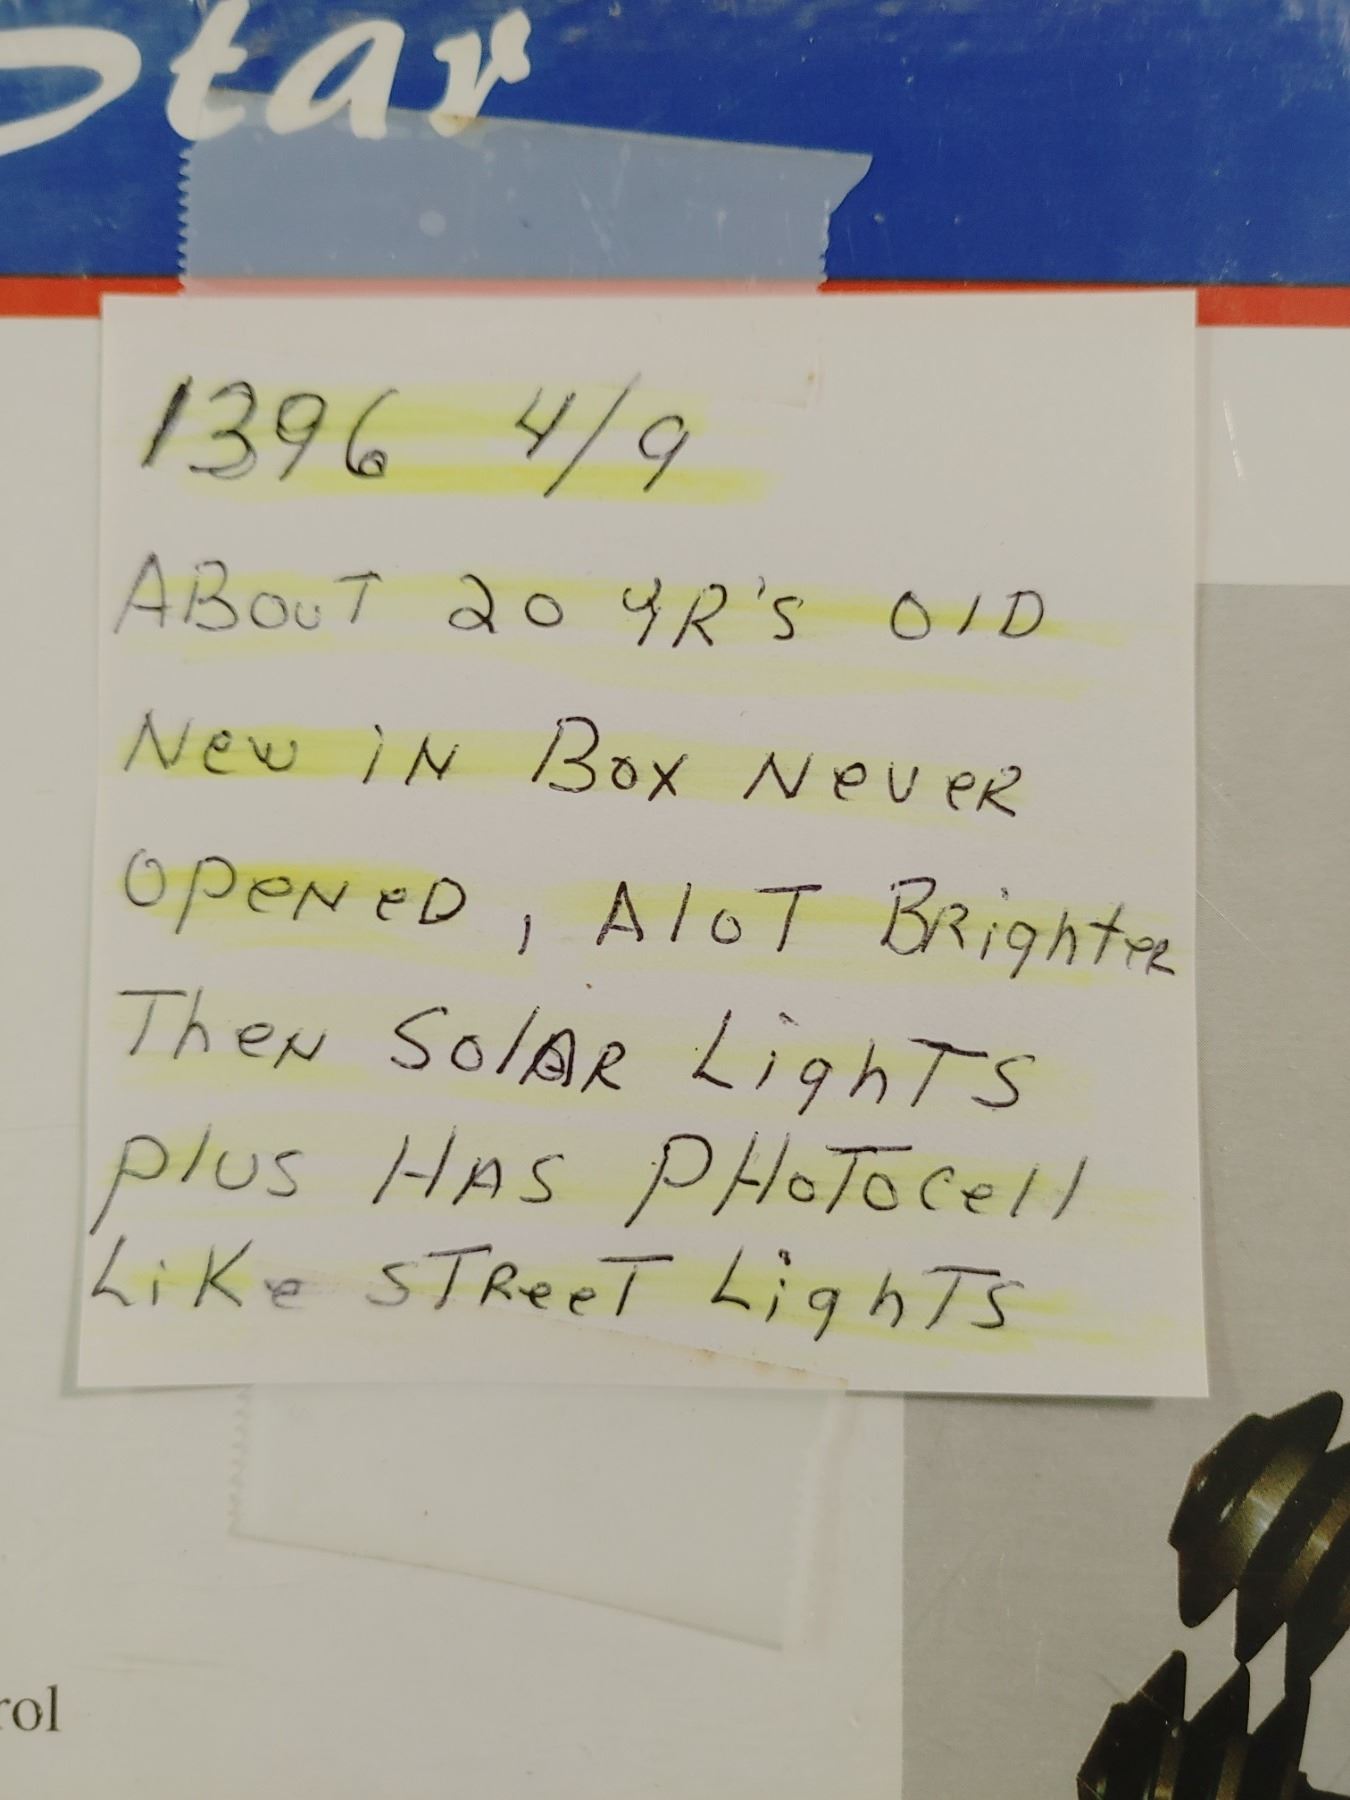 Star
1396 4/9
ABOUT 20 YR'S OlD
New iN Box Never
OPENED, AlOT BRighteR
Then SolAR LighTS
plus HAS PHOTOCell
LiKe STReeT LighTS
rol